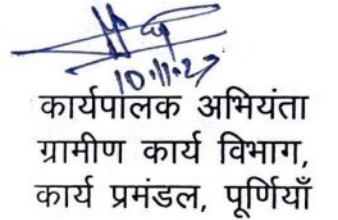 10.11.27
कार्यपालक अभियंता
ग्रामीण कार्य विभाग,
कार्य प्रमंडल, पूर्णियाँ